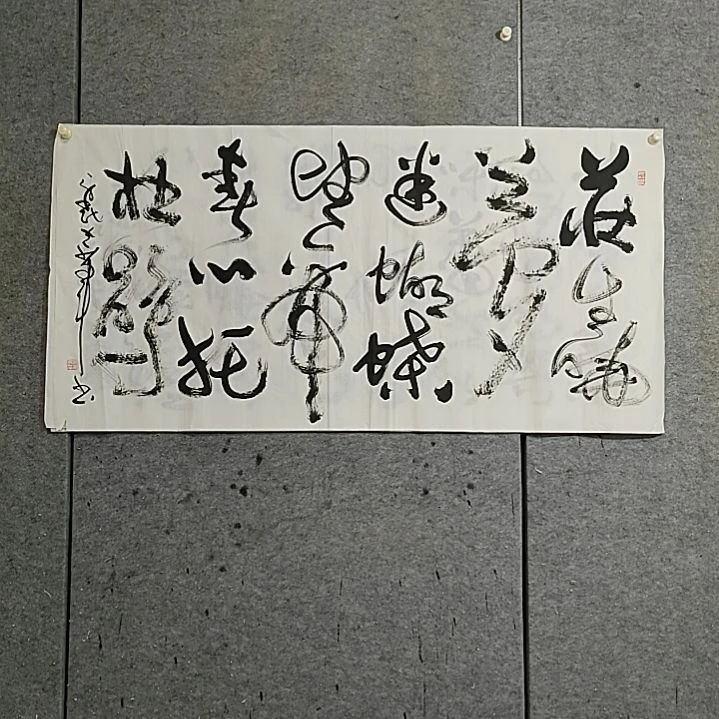 莊生曉
夢
迷蝴蝶
望帝
春心托
杜鵑